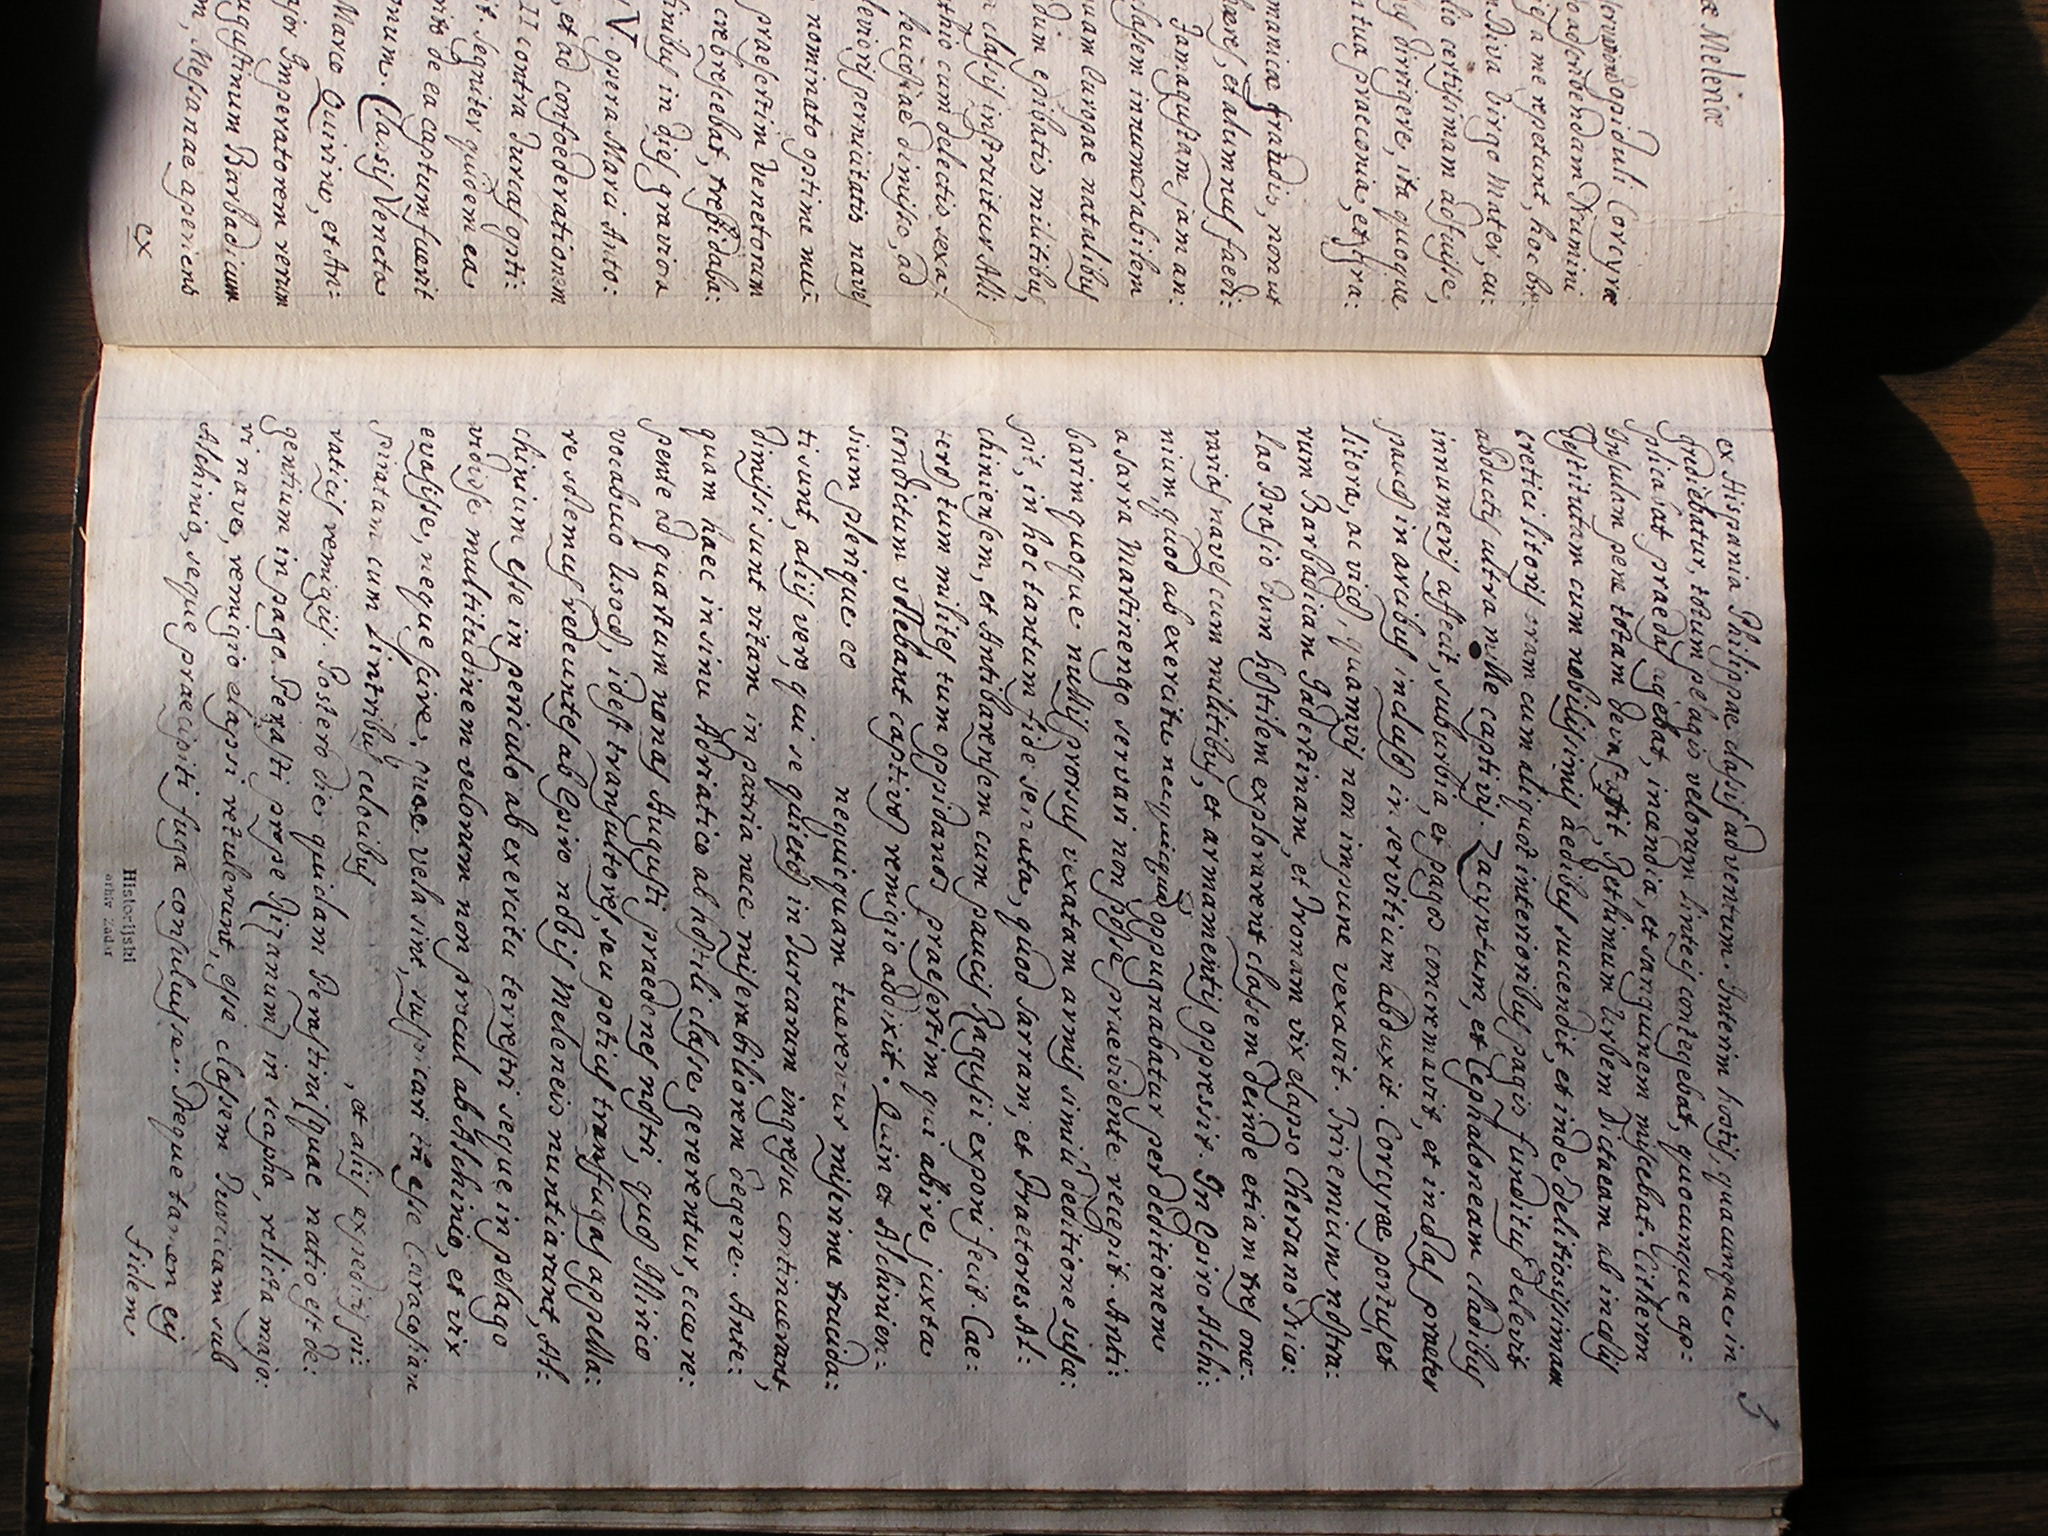 æ Meleniæ
opiduli Corcyræ
adscribendam Numini
a me repetunt, hoc br:
Diva birgo Mater, cu:
lio certissimam adfuisse,
dirrigere, ita quoque
tua praeconia, et fra:
maniæ fraudis, non ut
et alumnus faedi:
Famagustam jam an:
classem innumerabilem
quam Europae natalibus
dum epibatis militibus,
classis instruitur Alli
cum delectis sexa:
leucosiae dimisso, ad
levioris pernicitatis naves
nominato optime mu:
praesertim Venetorum
crebrescebat, trepidaba:
simulus in dies graviora
opera Marci Anto:
et ad confoederationem
II contra Turcas opti:
segniter quidem ea
de ea captum fuerit
num. Classis Veneta
Marco Quirino, et An:
jor Imperatorem verum
ugustinum Barbadium
m, Messanae aperiens
ex
3
ex Hispania Philippae classis adventum. Interim hostis, quacunque in
grediebatur, totum pelagus velorum linteis contegebat, quocunque ap:
plicabat praedas agebat, incendia, et sanguinem miscebat. Citherom
Insulam pene totam devastavit, Rethimum Urbem Dictaeam ab incolis
destitutam cum nobilissimis aedibus succendit, et inde delitiosissimam
cretici litoris oram cum aliquot interioribus pagis funditus delevit
abductis ultra mille captivis. Zacyntum, et Cephaloneam cladibus
innumeris affecit, suburbia, et pagos concremavit, et incolas praeter
paucos in arcibus inclusos in servitium abduxit. Corcyræ portus, et
litora, ac vicos, quamvis non impune vexavit. Triremium nostra:
rum Barbadicam Jadertinam, et Tronam vix elapso Chersano Drio:
lao Drasio dum hostilem explorarent classem deinde etiam tres one:
rarias naves cum militibus, et armamentis oppressit. In Epiro Alchi:
nium, quod ab exercitu necquicquam oppugnabatur per deditionem
a Sarra Martinengo servari non posse praevidente recepit. Anti:
barim quoque nullis prorsus vexatam armis simili deditione susce:
pit, in hoc tantum fide servata, quod Sarram, et Praetores Al:
chiniensem, et Antibarensem cum paucis Ragusii exponi fecit. Cae:
teros tum milites tum oppidanos praesertim qui abire juxta
condictum volebant captivos remigio addixit. Quin et Alchinien:
sium plerique co nequicquam tuerentur miserime trucida:
ti sunt, aliis vero qui se quietos in Turcarum ingressu continuerant,
dimissi sunt vitam in patria nece miserabiliorem degere. Ante:
quam haec in sinu Adriatico ab hostili classe gererentur, ecce re:
pente ad quartum nonas Augusti praedones nostri, quos Illirico
vocabulo Uscocos, idest transuitores, seu potius transfugas appella:
re solemus redeuntes ab Epiro nobis Meleneis nuntiarunt, Al:
chinium esse in periculo ab exercitu terrestri seque in pelago
vidisse multitudinem velorum non procul ab Alchinio, et vix
evasisse, neque scire, quae vela sint, suspicari tn esse Caracosiam
piratam cum lintribus celoribus
vaticis remigiis. Postero die quidam Perastini (quae natio est de:
gentium in pago Perasti prope Rizanum) in scapha, relicta majo:
ri nave, remigio elapsi retulerunt, esse classem Turcicam sub
Alchinio, seque praecipiti fuga consuluisse. Neque tamen eis
, et aliis expeditis pi:
fidem
Historijski
arhiv Zadar